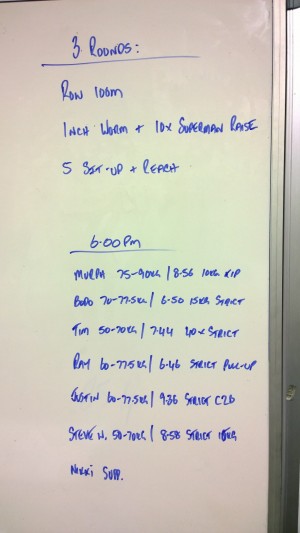 3 ROUNDS:
ROW 100M
INCH WORM + 10x SUPERMAN RAISE
5 SIT-UP + REACH
6:00PM
MURPH 75-90KG / 8:56 10KG KIP
BODO 70-77.5KG / 6:50 15KG STRICT
TIM 50-70KG / 7:44 STRICT
RAY 60-77.5KG / 6:46 STRICT PULL-UP
JUSTIN 60-77.5KG / 9:36 STRICT C2B
STEVE N. 50-70KG / 8:58 STRICT
NIKKI SUPP.